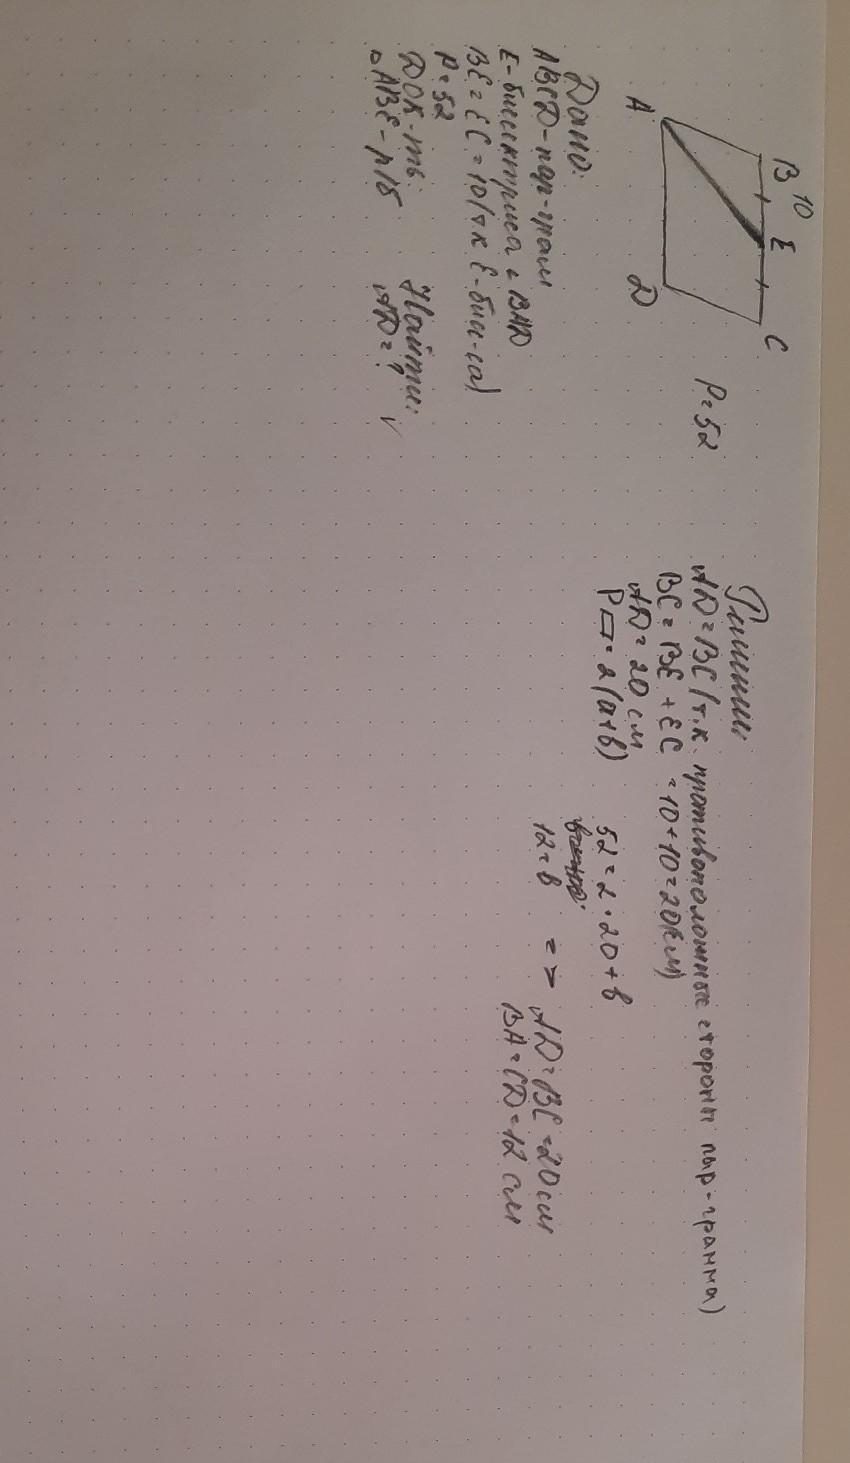 B 10 E C
A D
P=52
Дано:
ABCD-пар-грам
E-биссектриса ∠ BAD
BE = EC = 10(т.к E-бис-са)
P=52
Док-ть:
△ABE-р/б
Найти:
AD=?
Решение:
AD=BC(т.к. противоположные стороны пар-грамма)
BC = BE + EC = 10+10=20(см)
AD = 20 см
P▱= 2(a+b)
52=2·20+b
12=b => AD=BC=20см
BA=CD=12 см